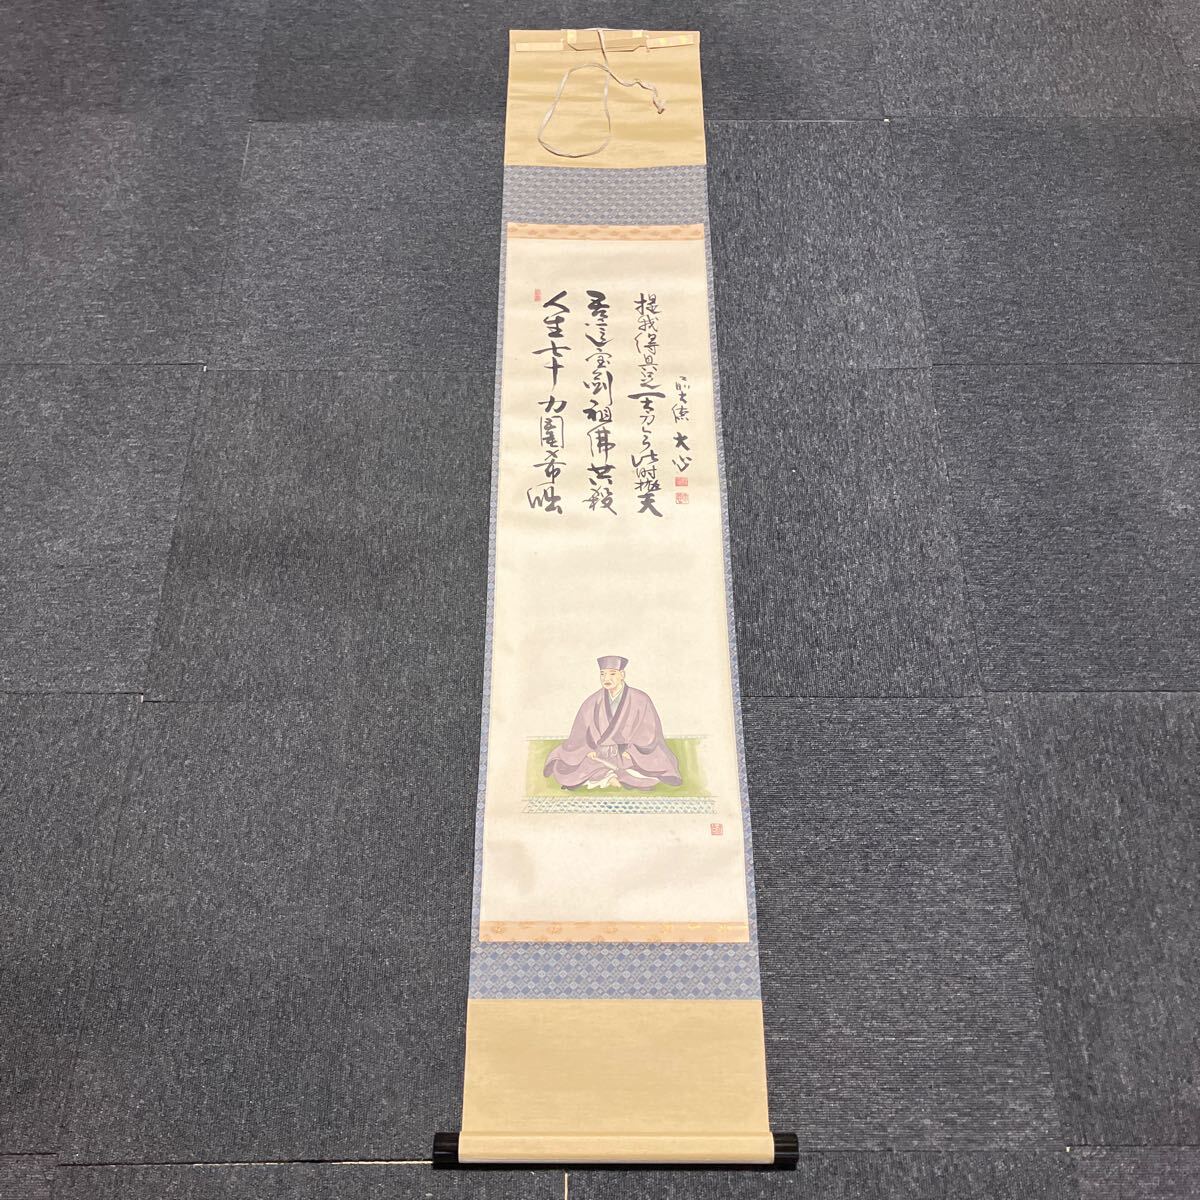 人生七十力圍希咄
吾這宝剣祖佛共殺
提我得具足一太刀今此時抛天
前大徳 大心